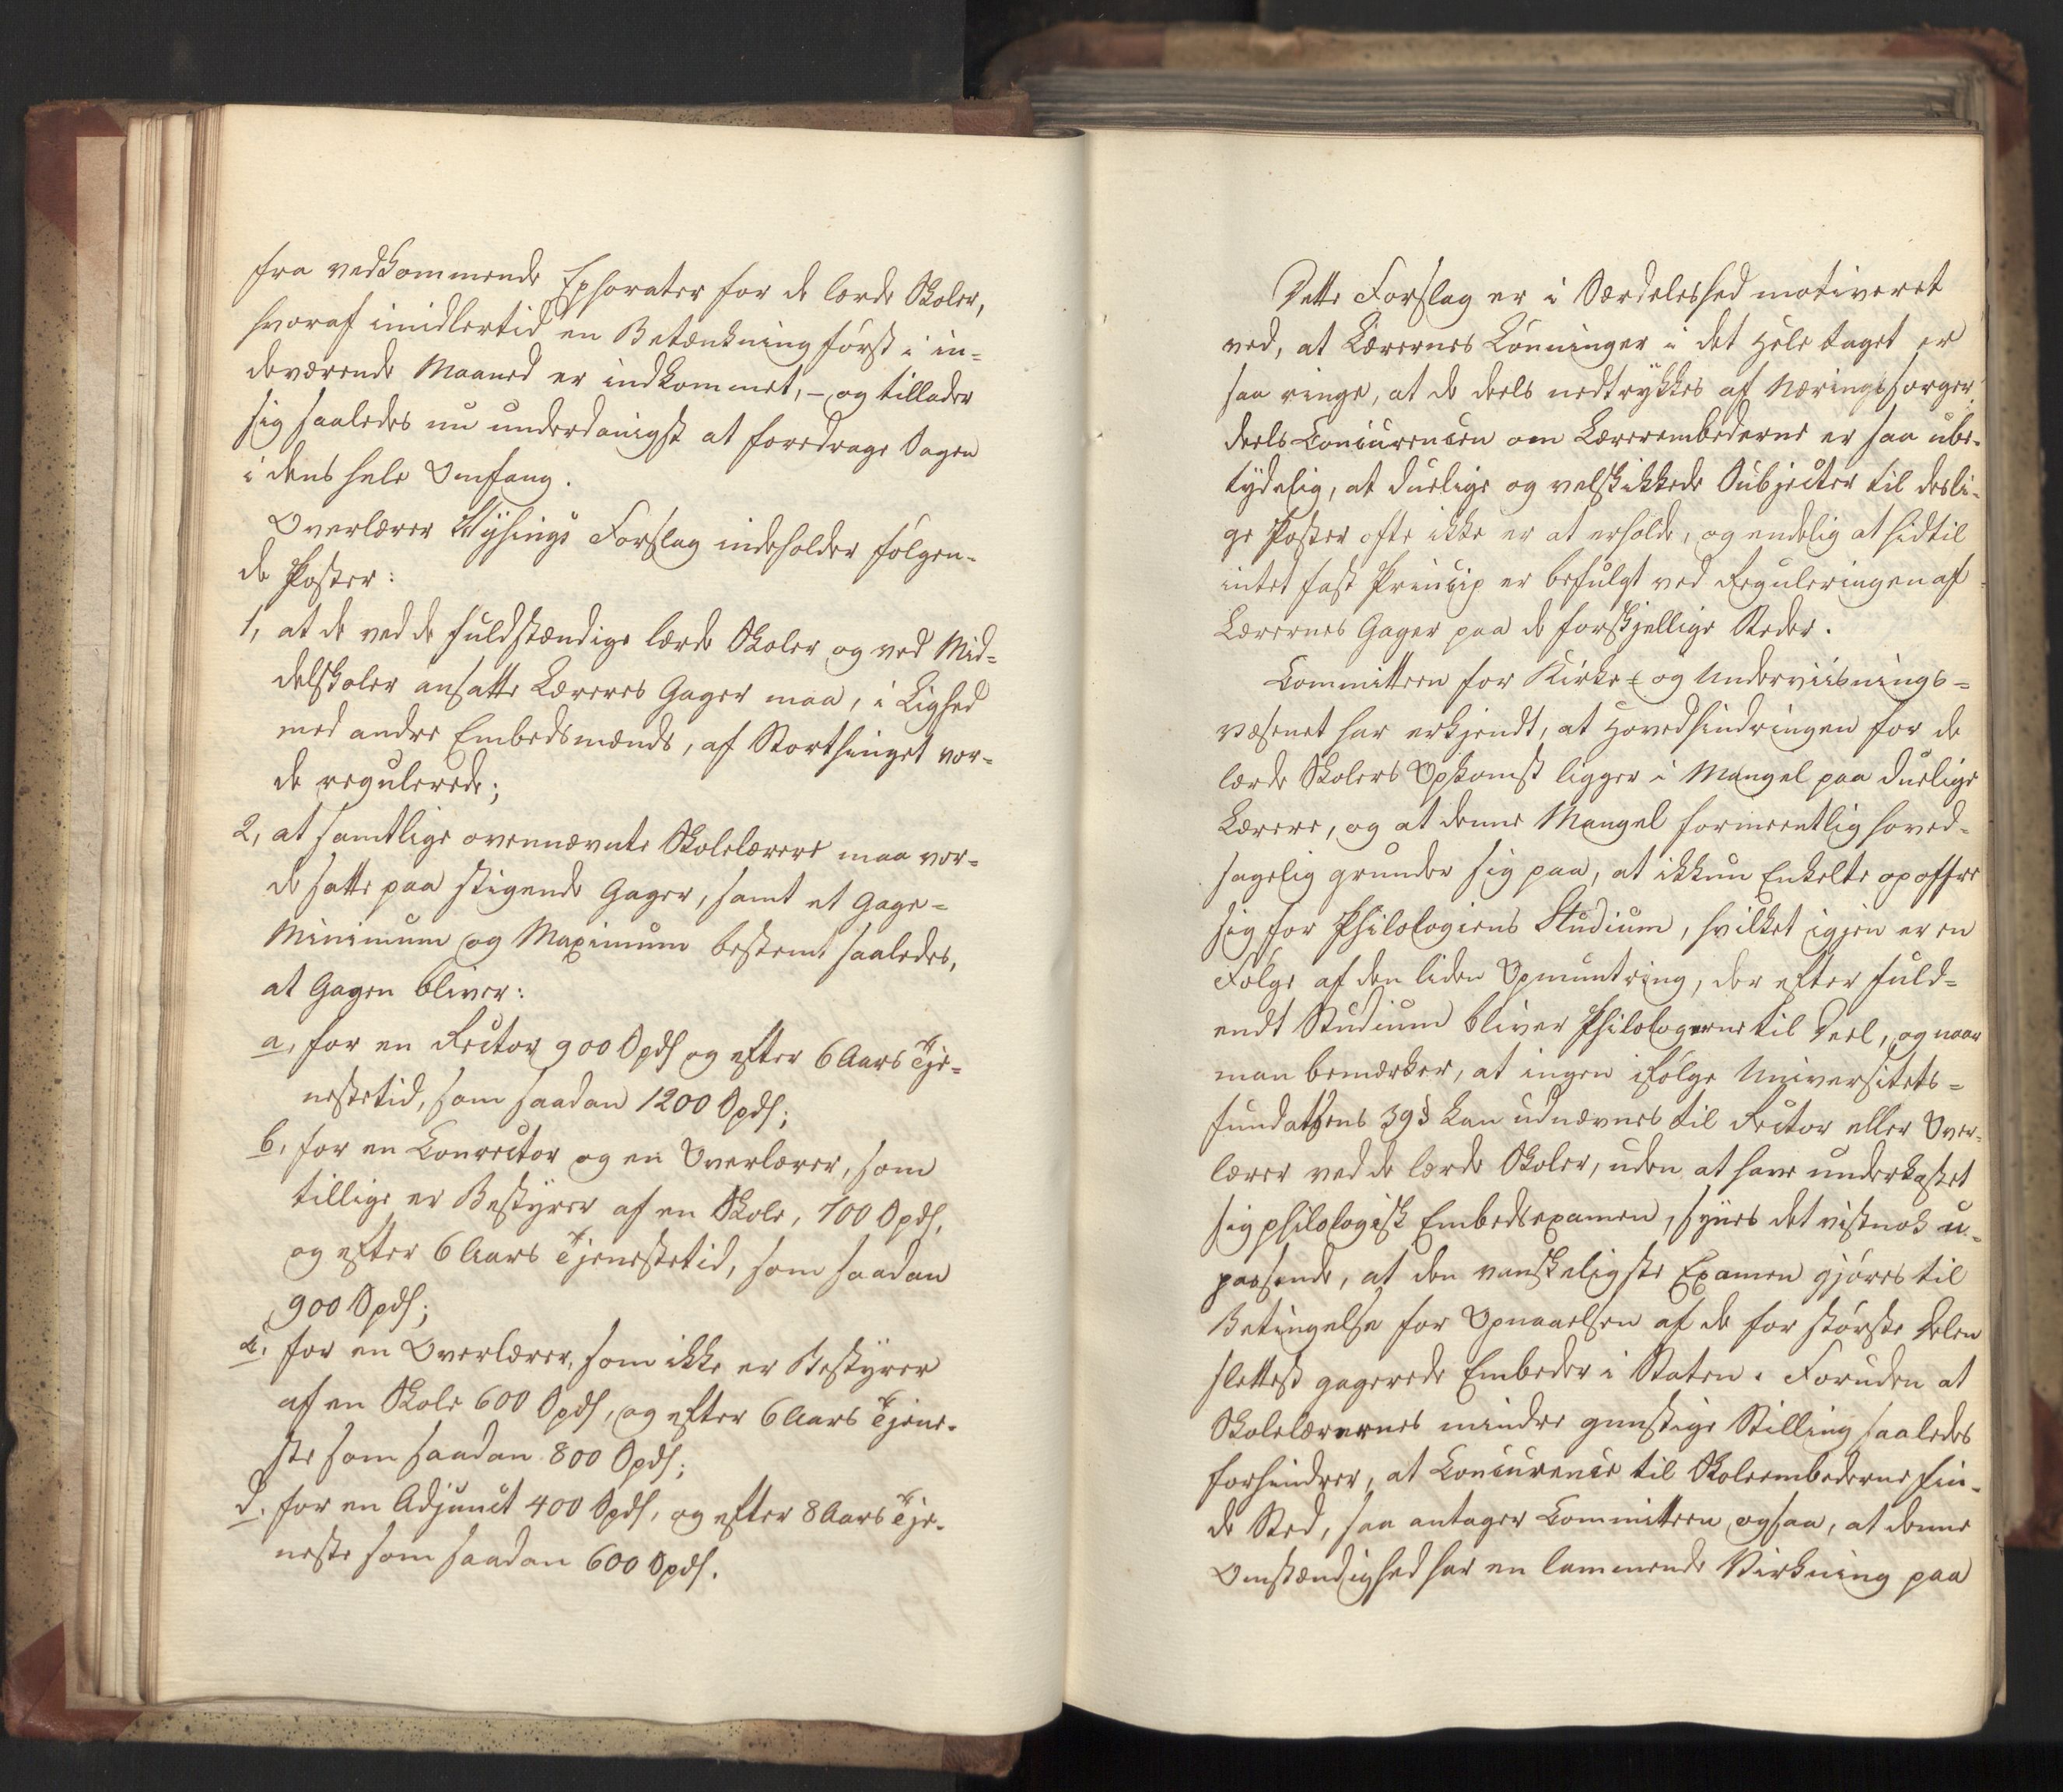 fra vedkommende Ephorater for de lærde Skoler,
hvoraf imidlertid en Betænkning først i in-
deværende Maaned er indkommet, - og tillader
sig saaledes nu underdanigst at foredrage Sagen
i dens hele Omfang.
Overlærer Thysings Forslag indeholder følgen-
de Poster:
1, at de ved de fuldstændige lærde Skoler og ved Mid-
delskoler ansatte Læreres Gager maa, i Lighed
med andre Embedsmænds, af Storthinget vor-
de regulerede;
2, at samtlige ovennævnte Skolelærere maa vor-
de satte paa stigende Gager, samt et Gage-
Minimum og Maximum bestemt saaledes,
at Gagen bliver:
a, for en Rector 900 Spds og efter 6 Aars Tje-
nestetid, som saadan 1200 Spds;
b, for en Conrector og en Overlærer, som
tillige er Bestyrer af en Skole, 700 Spds,
og efter 6 Aars Tjenestetid, som saadan
900 Spds;
c, for en Overlærer, som ikke er Bestyrer
af en Skole 600 Spds, og efter 6 Aars Tjene-
ste som saadan 800 Spds;
d, for en Adjunct 400 Spds, og efter 8 Aars Tje-
neste som saadan 600 Spds.
Dette Forslag er i Særdeleshed motiveret
ved, at Lærernes Lønninger i det Hele taget er
saa ringe, at de deels nedtrykkes af Næringssorger,
deels Concurencen om Lærerembederne er saa ube-
tydelig, at duelige og velskikkede Subjecter til desli-
ge Poster ofte ikke er at erholde, og endelig at hidtil
intet fast Princip er befulgt ved Reguleringen af
Lærernes Gager paa de forskjellige Steder.
Committeen for Kirke- og Underviisnings-
væsenet har erkjendt, at Hovedhindringen for de
lærde Skolers Opkomst ligger i Mangel paa duelige
Lærere, og at denne Mangel formeentlig hoved-
sagelig grunder sig paa, at ikkun Enkelte opoffre
sig for Philologiens Studium, hvilket igjen er en
Følge af den liden Opmuntring, der efter fuld-
endt Studium bliver Philologerne til Deel, og naar
man bemærker, at ingen ifølge Universitets-
fundatsens 39 § kan udnævnes til Rector eller Over-
lærer ved de lærde Skoler, uden at have underkastet
sig philologisk Embedsexamen, synes det vistnok u-
passende, at den vanskeligste Examen gjøres til
Betingelse for Opnaaelsen af de for største Delen
slettest gagerede Embeder i Staten. Foruden at
Skolelærernes mindre gunstige Stilling saaledes
forhindrer, at Concurence til Skoleembederne fin-
de Sted, saa antager Committeen ogsaa, at denne
Omstændighed har en lammende Virkning paa